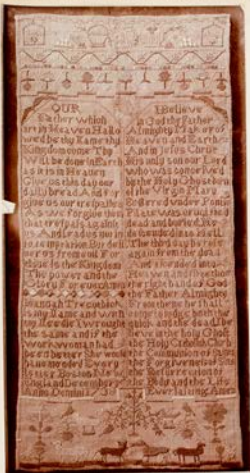 OUR
Father which
art in Heaven Hallo
wed be thy Name thy
Kingdom come Thy
Will be done in Earth
as it is in Heaven
Give us this day our
daily bread And for
give us our trespasses
As we forgive them
that trespass against
us And lead us not in
to temptation But deli
ver us from evil For
thine is the Kingdom
The power and the
Glory for ever Amen
Hannah Trecothick
is my Name and with
my Needle I wrought
the same and if the
had been better She would
England December
Anno Domini 738
I Believe
in God the Father
Almighty Maker of
Heaven and Earth
And in Jesus Christ
His only son our Lord
who was conceived
by the Holy Ghost born
of the Virgin Mary
Suffered under Ponti
Pilate was crucified
dead and buried He
descended into Hell
The third day he rose
again from the dead
And ascended into
Heaven and sitteth on
the right hand of God
the Father Almighty
From thence he shall
come to judge both the
quick and the dead I be
lieve in the Holy Ghost
the Holy Catholick Church
the Communion of Saints
the Forgiveness of Sins
the Resurrection of
the Body and the Life
Everlasting Amen